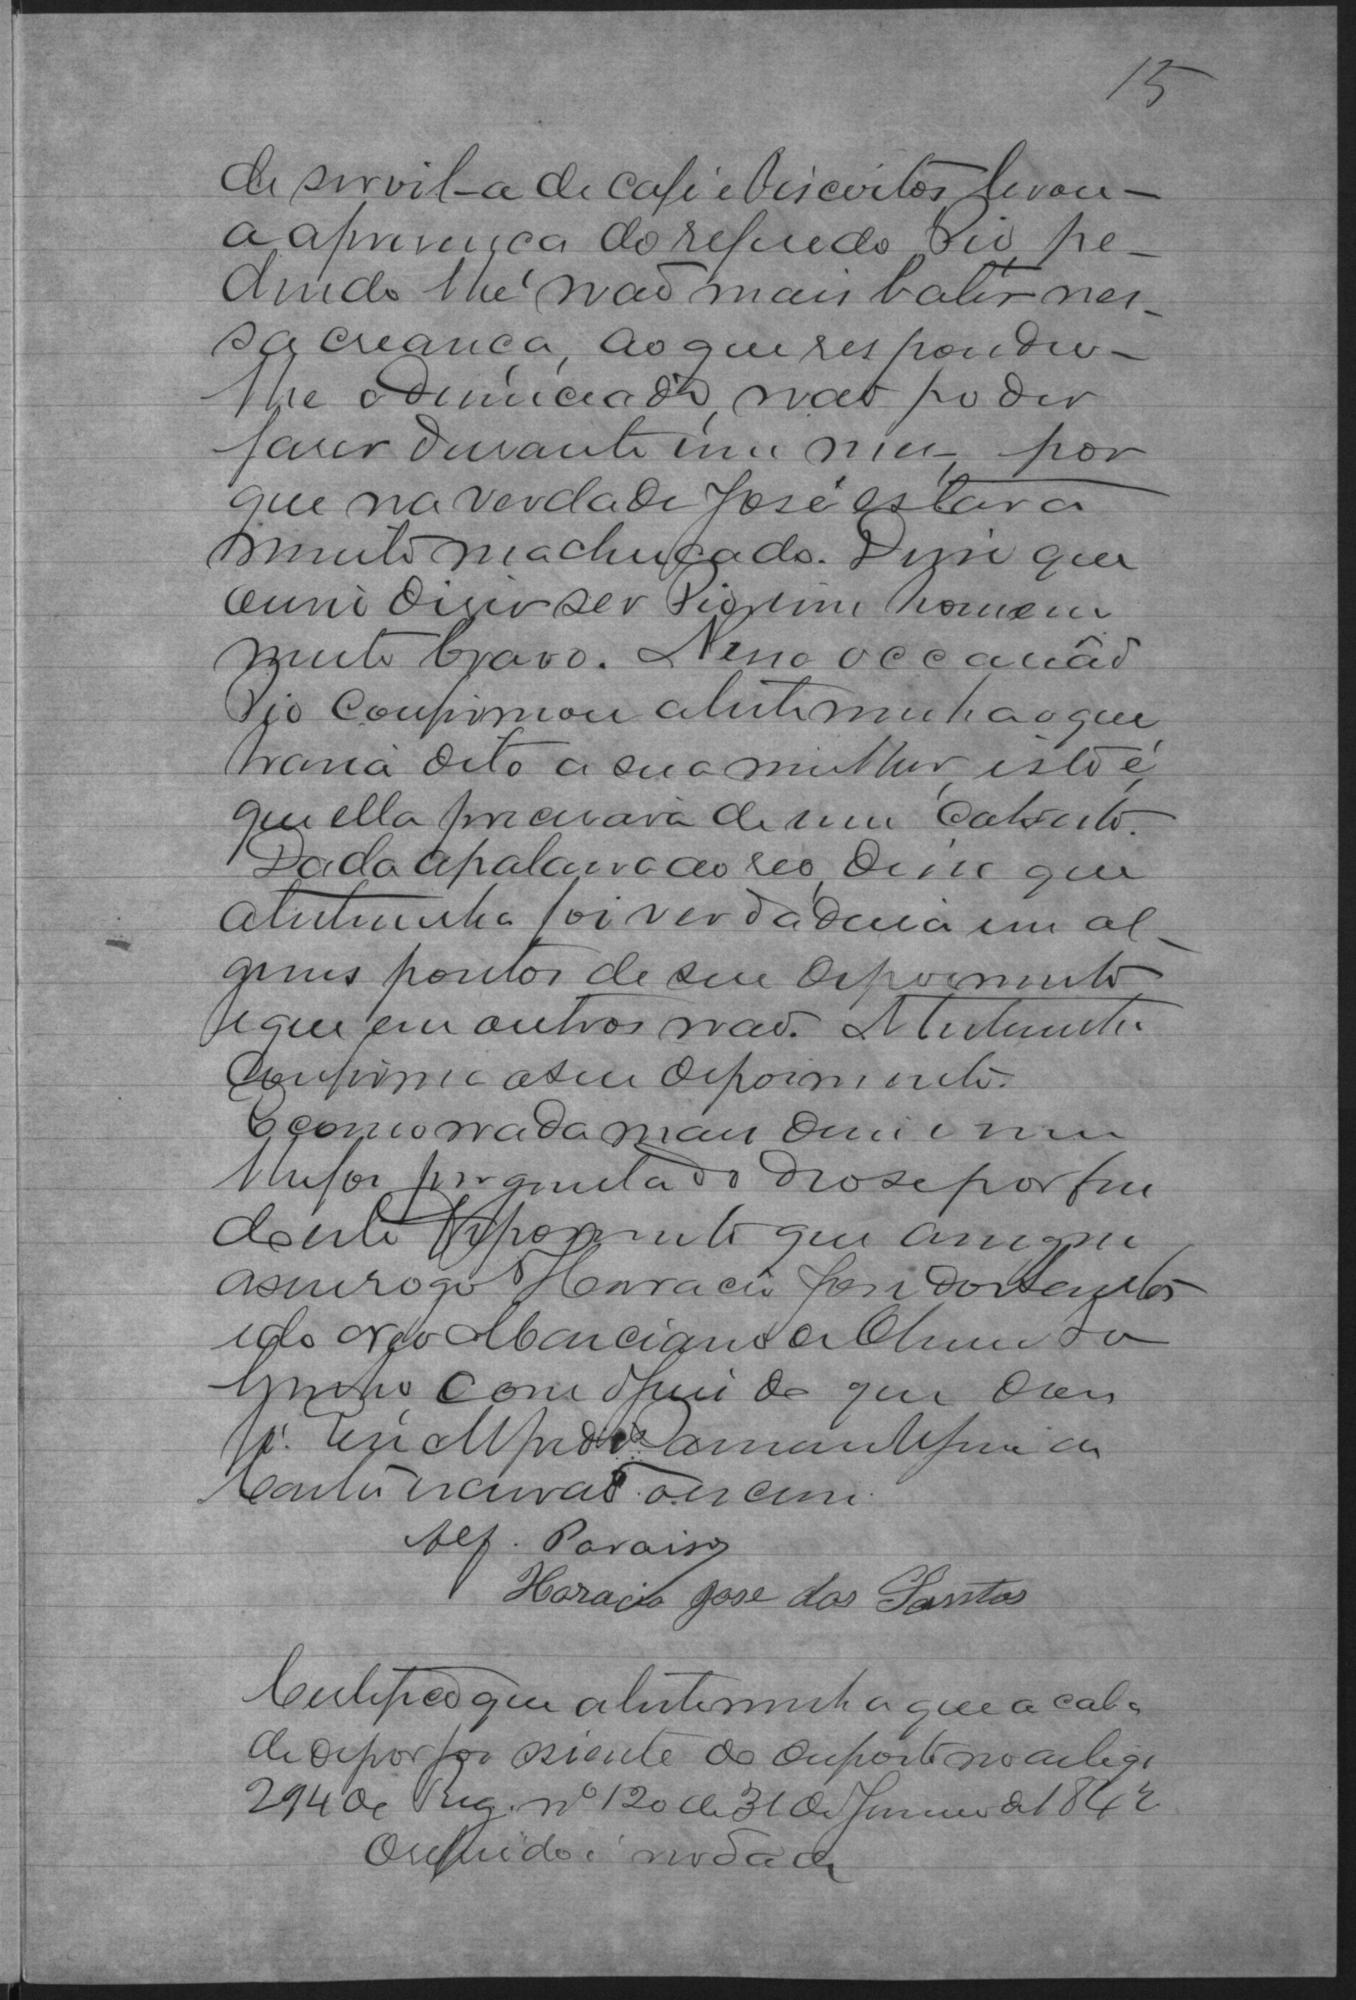 15
de servil-a de café e biscoitos, levou-
a a presença do referido Pio, pe-
dindo lhe não mais bater nes-
sa creança, ao que respondeu-
lhe o denunciado, não poder
faser durante um mez, por
que na verdade José estava
muito machucado. Disse que
ouvio diser ser Pio um homem
muito bravo. Nessa occasião
Pio confirmou a testemunha o que
havia dito a sua mulher, isto é,
que ella precisava de um
Dada a palavra ao reo, disse que
a testemunha foi verdadeira em al-
guns pontos de seu depoimento
e que em outros não. A testemunha
confirma o seu depoimento.
E como nada mais disse e nem
lhe foi perguntado deo se por fin
do este depoimento que assigna
a seu rogo Horacio José dos Santos
e do reo Marciano de
com o Juiz do que dou
fé. Eu Alfredo
escrivão o escrevi.
Alf. Paraiso
Horacio Jose dos Santos
Certifico que a testemunha que acaba
de depor foi sciente do disposto no artigo
294 do Reg. nº 120 de 31 de Janeiro de 1842
O referido é verdade